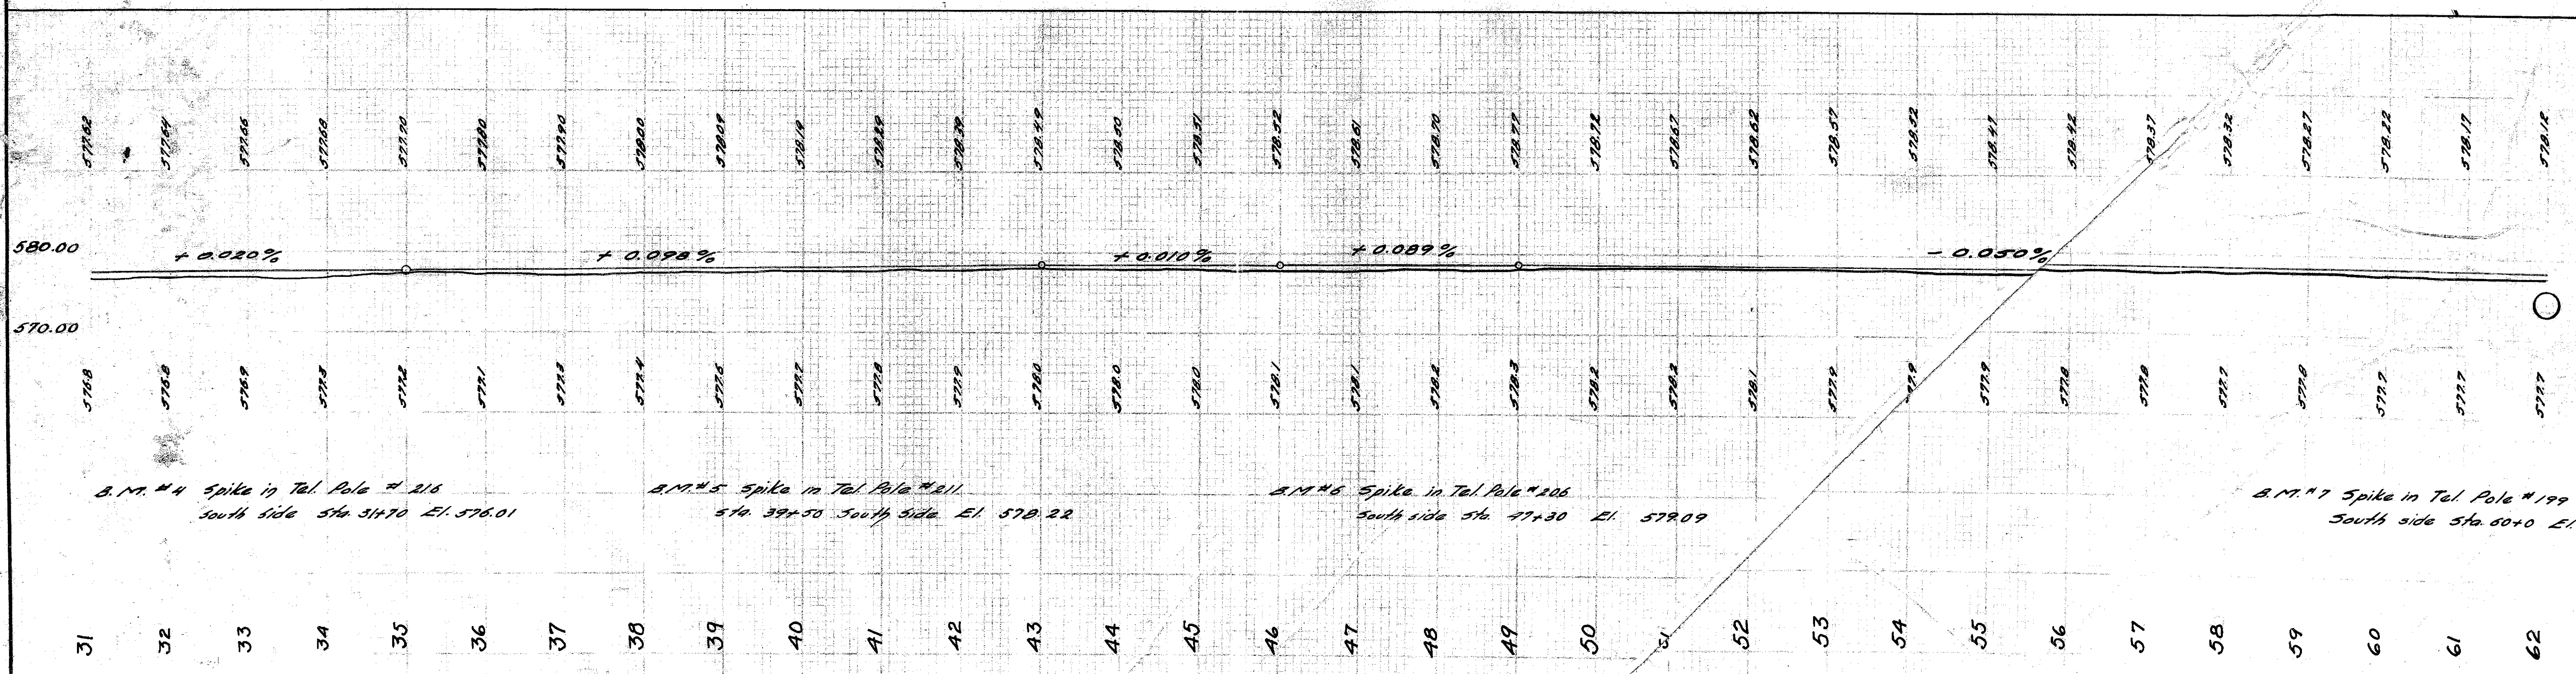 577.62 577.64 577.66 577.68 577.70 577.80 577.90 578.00 578.09 578.19 578.29 578.39 578.49 578.50 578.51 578.52 578.61 578.70 578.77 578.72 578.67 578.62 578.57 578.52 578.47 578.42 578.37 578.32 578.27 578.22 578.17 578.12
580.00
+ 0.020% + 0.098% + 0.010% + 0.089% - 0.050%
570.00
576.8 576.8 576.9 577.3 577.2 577.1 577.3 577.4 577.6 577.7 577.8 577.9 578.0 578.0 578.0 578.1 578.1 578.2 578.3 578.2 578.2 578.1 577.9 577.9 577.9 577.8 577.8 577.7 577.8 577.7 577.7 577.7
B.M. #4 Spike in Tel. Pole # 216
South side Sta. 31+70 El. 576.01
B.M. #5 Spike in Tel. Pole #211
Sta. 39+50 South Side El. 578.22
B.M #6 Spike in Tel. Pole #206
South side Sta. 47+30 El. 579.09
B.M. #7 Spike in Tel. Pole #199
South side Sta. 60+0 El.
31 32 33 34 35 36 37 38 39 40 41 42 43 44 45 46 47 48 49 50 51 52 53 54 55 56 57 58 59 60 61 62